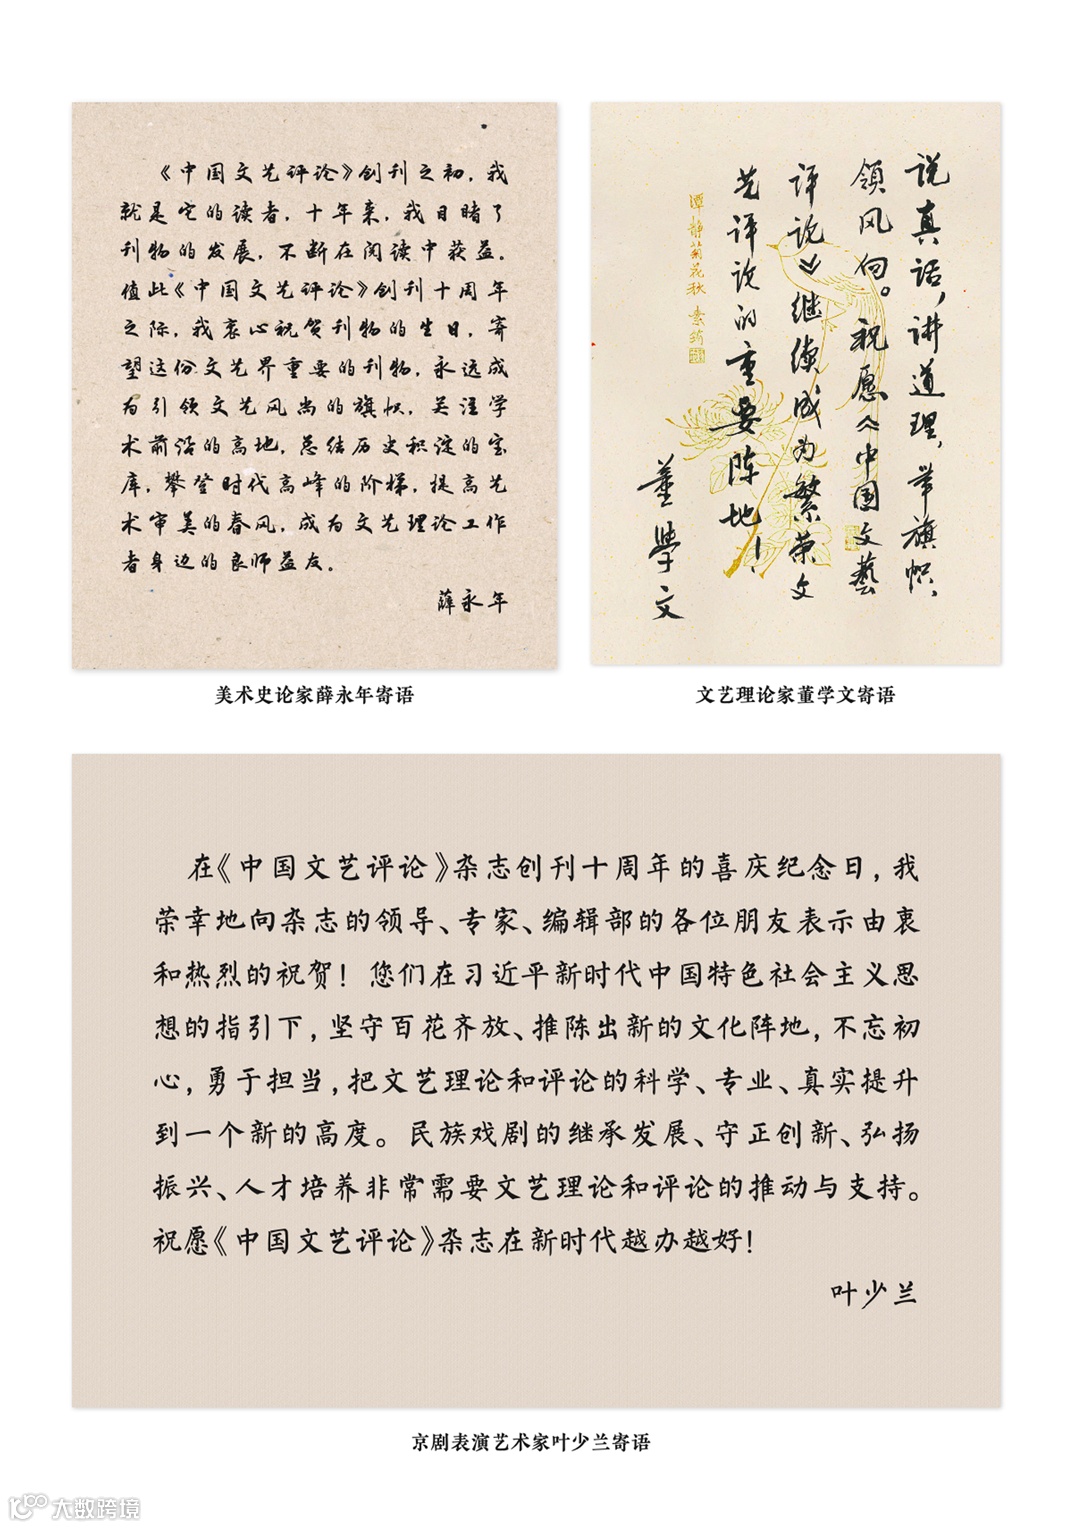 《中国文艺评论》创刊之初，我
就是它的读者，十年来，我目睹了
刊物的发展，不断在阅读中获益。
值此《中国文艺评论》创刊十周年
之际，我衷心祝贺刊物的生日，寄
望这份文艺界重要的刊物，永远成
为引领文艺风尚的旗帜，关注学
术前沿的高地，总结历史积淀的宝
库，攀登时代高峰的阶梯，提高艺
术审美的春风，成为文艺理论工作
者身边的良师益友。
薛永年
美术史论家薛永年寄语
说真话，讲道理，举旗帜，
领风向。祝愿《中国文藝
评论》继续成为繁荣文
艺评论的重要阵地！
董學文
谭静菊花秋
文艺理论家董学文寄语
在《中国文艺评论》杂志创刊十周年的喜庆纪念日，我
荣幸地向杂志的领导、专家、编辑部的各位朋友表示由衷
和热烈的祝贺！您们在习近平新时代中国特色社会主义思
想的指引下，坚守百花齐放、推陈出新的文化阵地，不忘初
心，勇于担当，把文艺理论和评论的科学、专业、真实提升
到一个新的高度。民族戏剧的继承发展、守正创新、弘扬
振兴、人才培养非常需要文艺理论和评论的推动与支持。
祝愿《中国文艺评论》杂志在新时代越办越好！
叶少兰
京剧表演艺术家叶少兰寄语
大数跨境